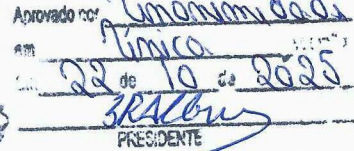 Aprovado por Unanimidade
em Única
22 de 10 de 2025
PRESIDENTE